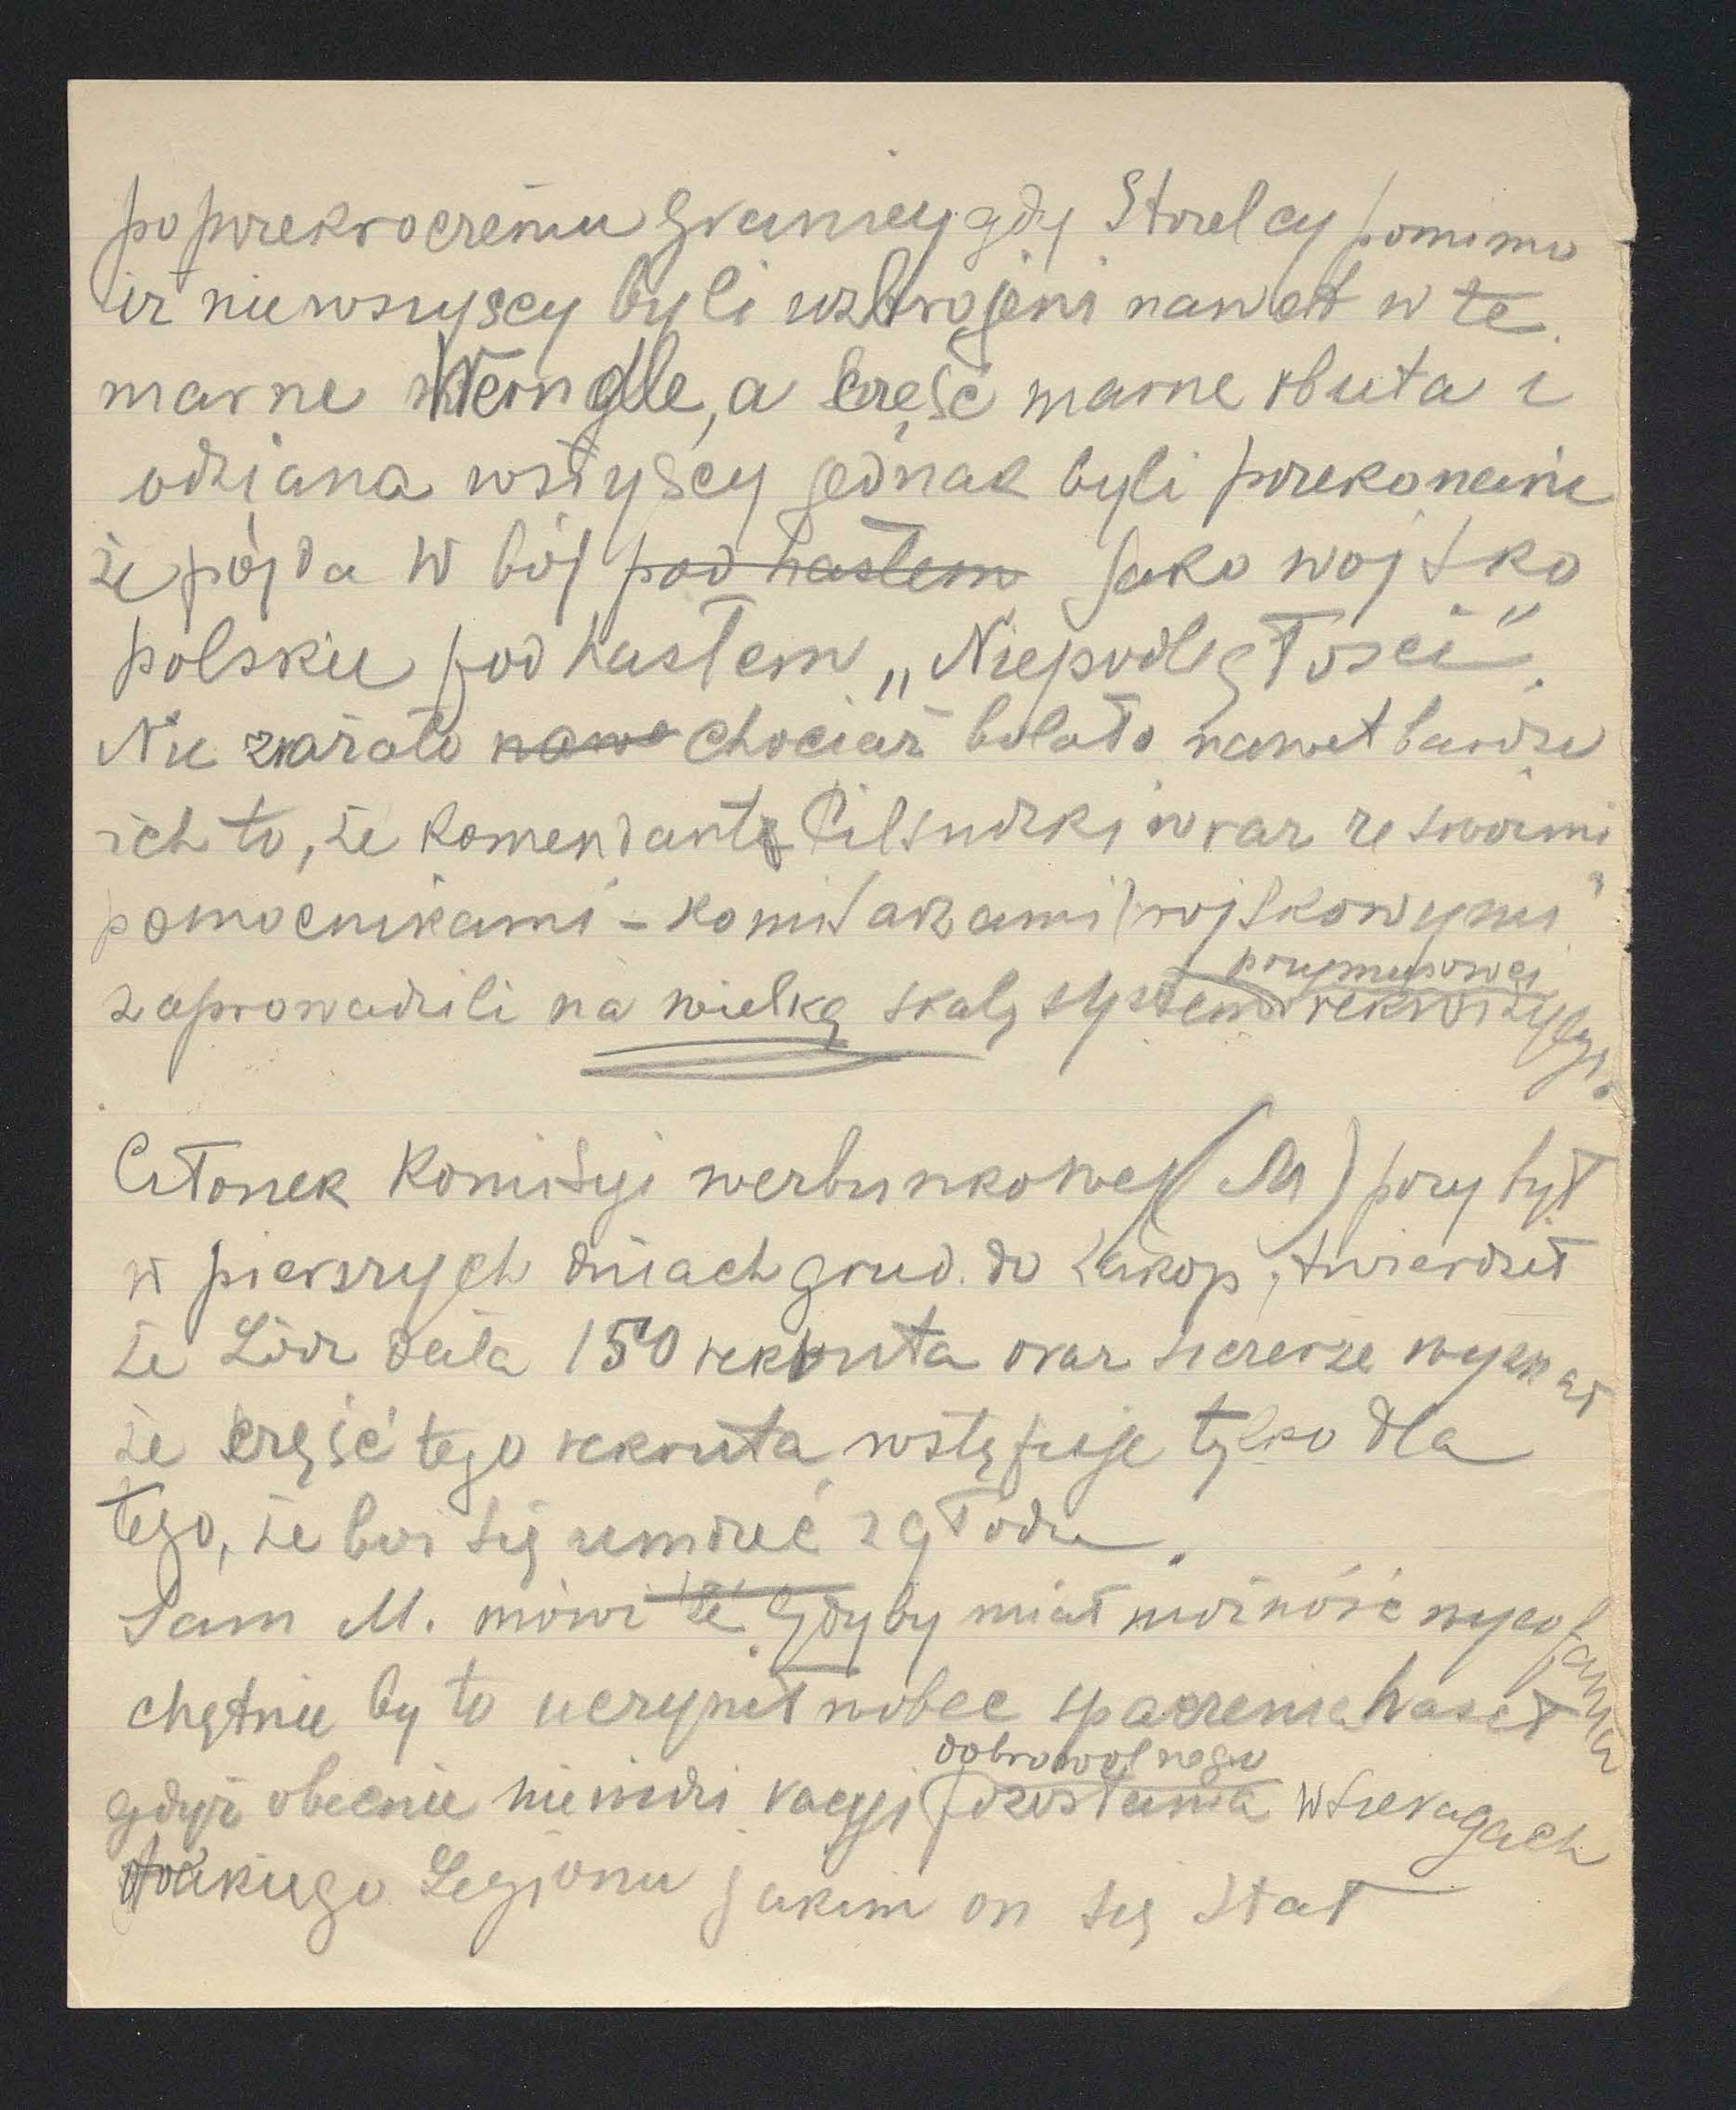 po przekroczeniu granicy gdy Strzelcy pomimo
iż nie wszyscy byli uzbrojeni nawet w te
marne Werndle, a część marne obuta i
odziana wszyscy jednak byli przekonani
że pójda w bój pod hasłem jako wojsko
polskie pod hasłem „Niepodległości".
Nie zrażało nawe chociaż bolało nawet bardzo
ich to, że komendant Piłsudzki wraz ze swoimi
pomocnikami - komisarzami wojskowymi"
zaprowadzili na wielką skalę system przymusowej rekwizycyi.
Członek Komisyi werbunkowej (M) przybył
w pierszych dniach grud. do Zakop, twierdził
że Łódz dała 150 rekruta oraz szczerze wyznał
że część tego rekruta wstępuje tylko dla
tego, że boi się umrzeć z głodu.
Sam M. mówi że Gdyby miał możność wycofania
chętnie by to uczynił wobec spaczenia haseł
gdyż obecnie nie widzi racyi dobrowolnego pozostania w szeragach
takiego Legjonu jakim on się stał